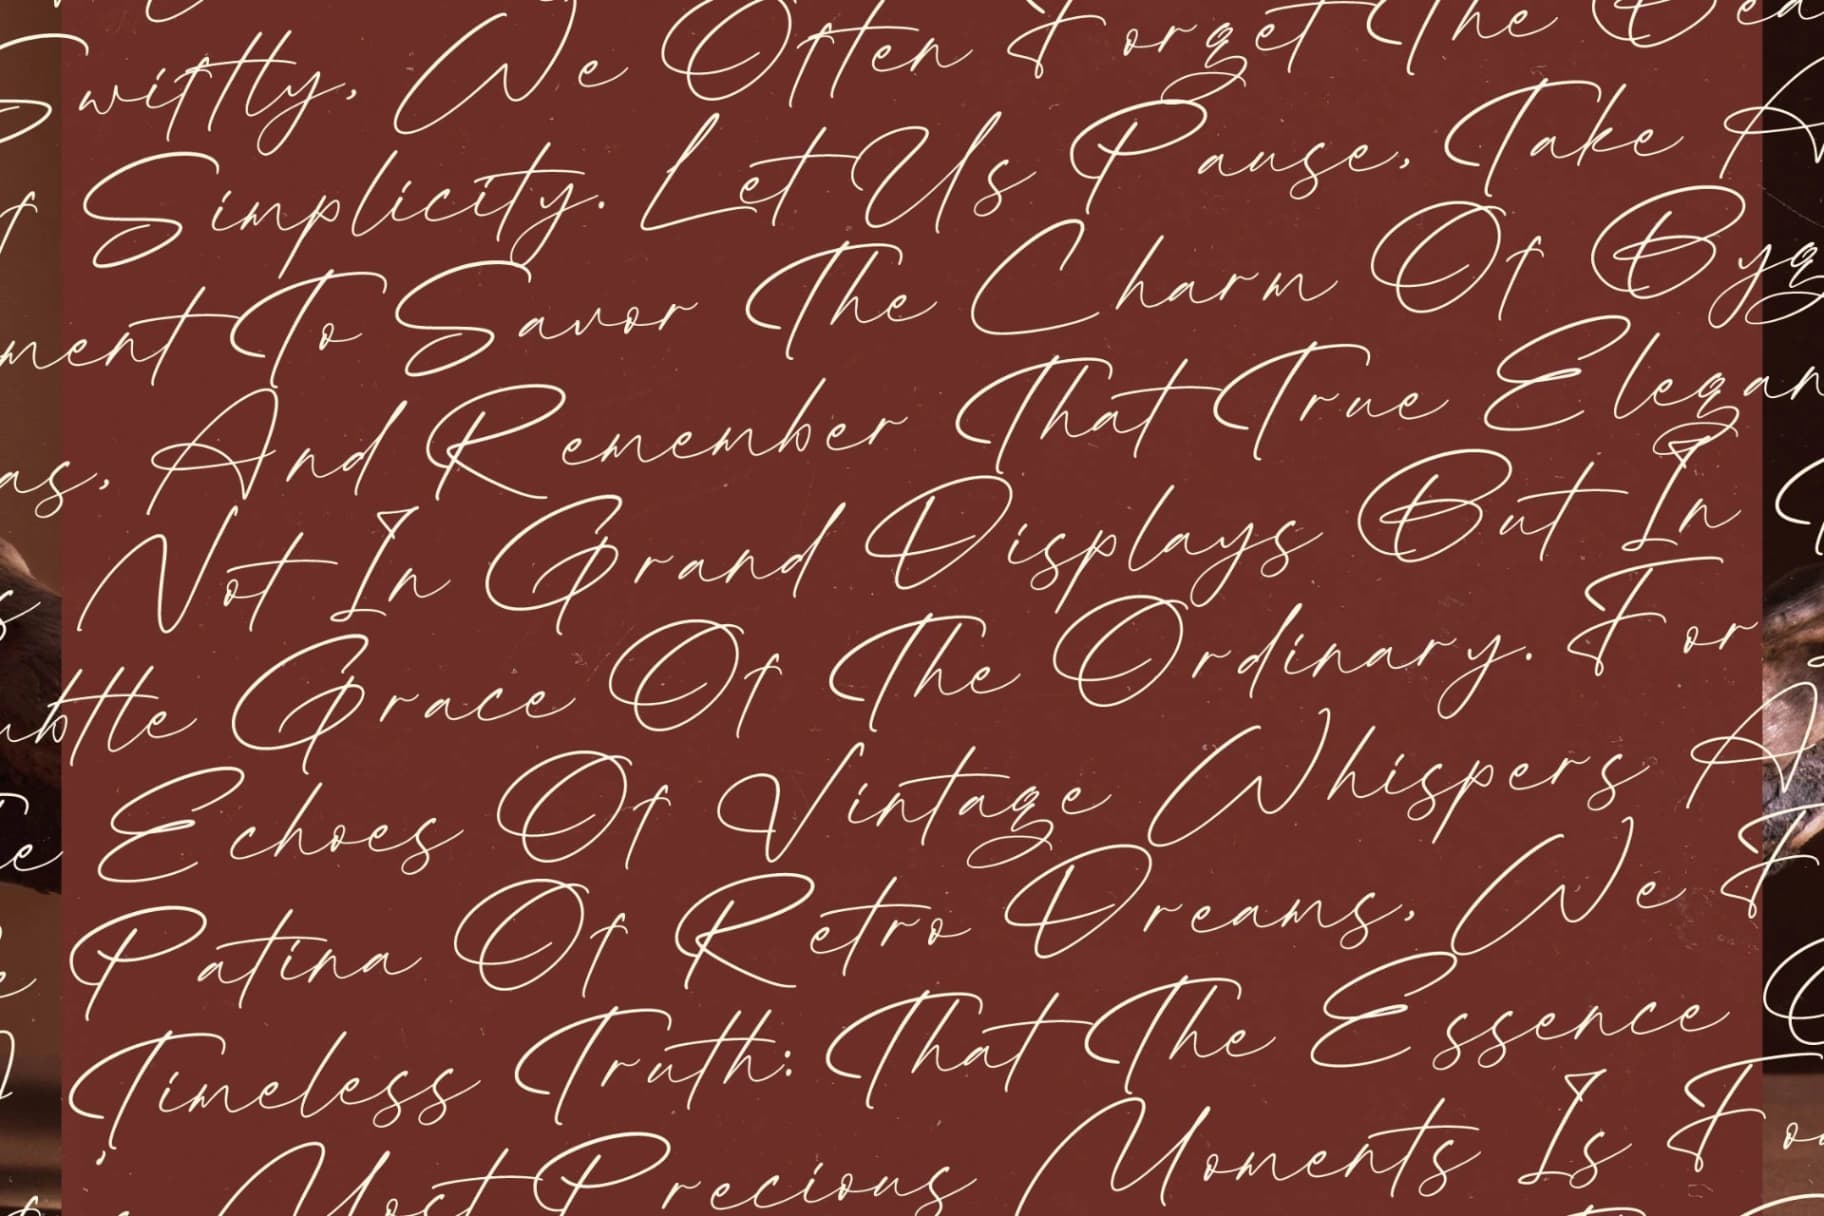 Swiftly, We Often Forget The
Simplicity. Let Us Pause, Take A
ment To Savor The Charm Of Byg
as, And Remember That True Elegan
Not In Grand Displays But In
ubtle Grace Of The Ordinary. For
Echoes Of Vintage Whispers A
Patina Of Retro Dreams, We F
Timeless Truth: That The Essence
Most Precious Moments Is Fo